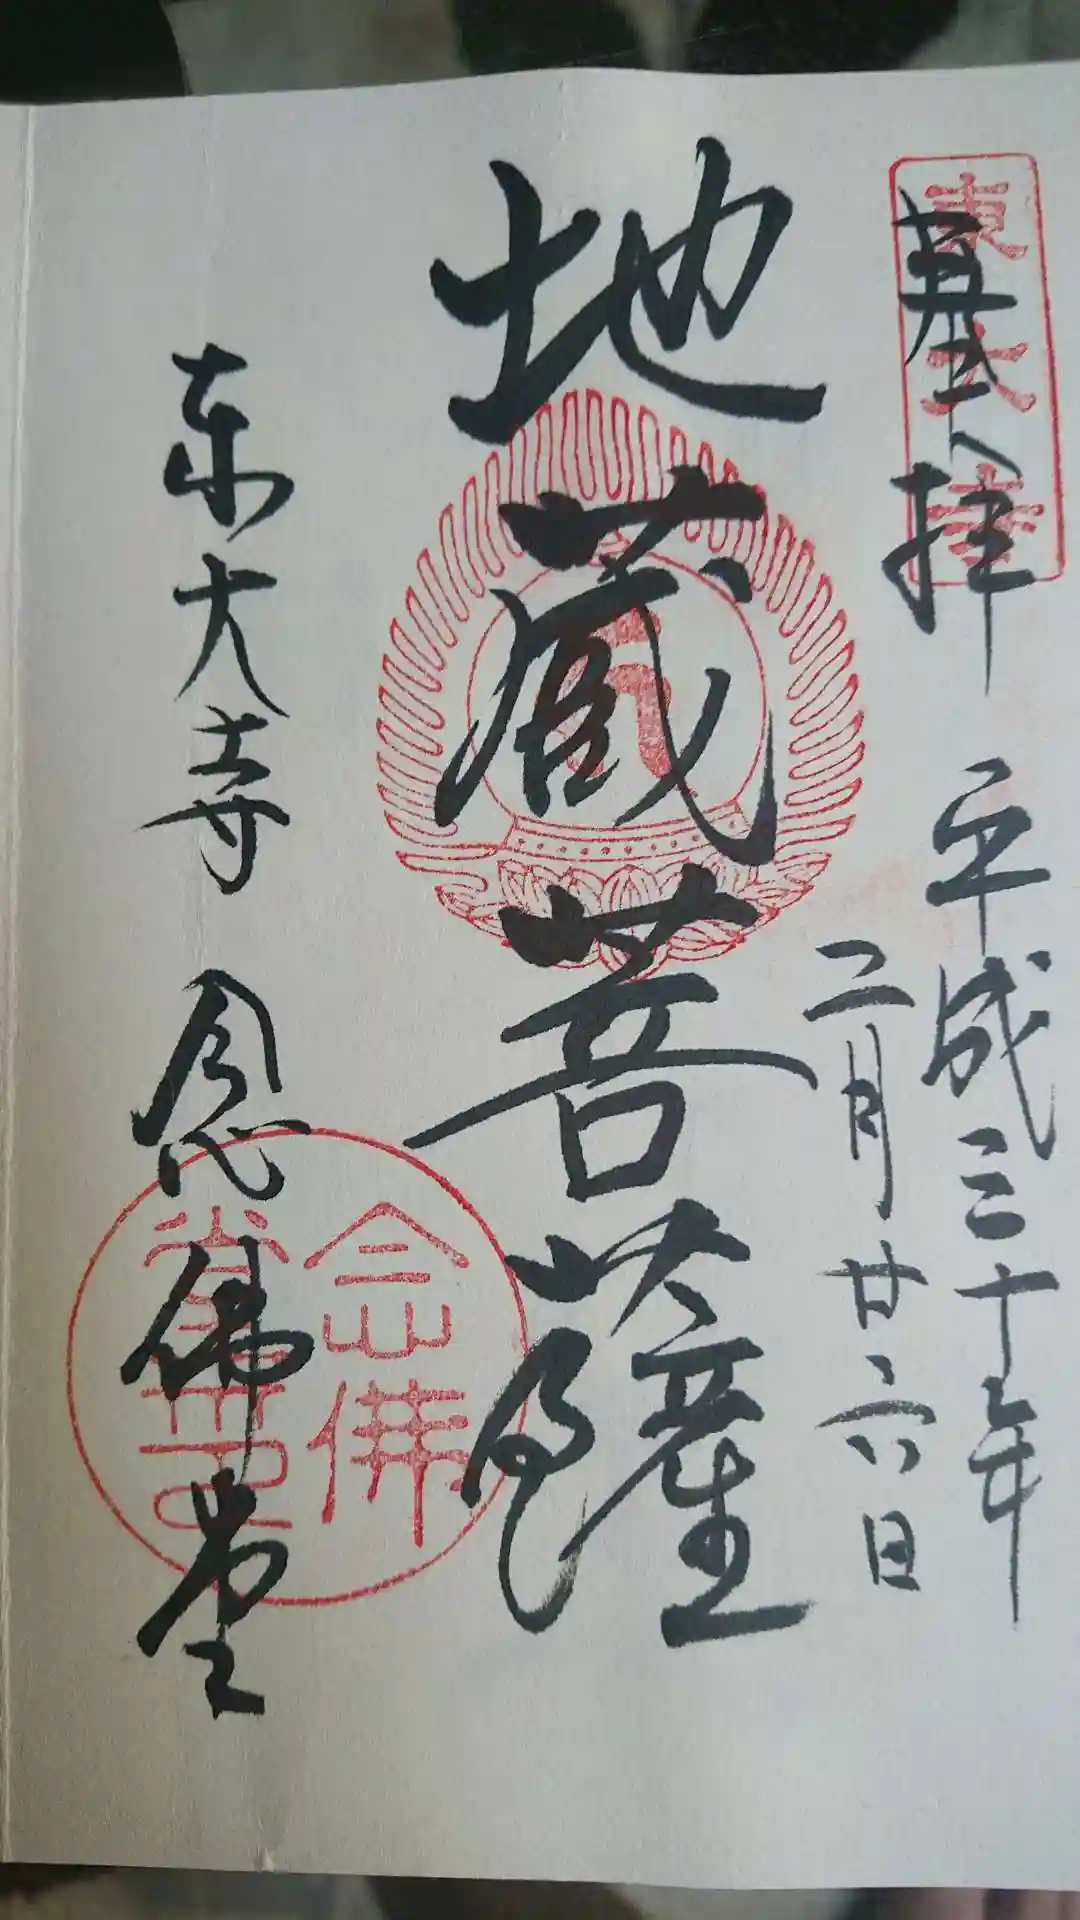 奉拝
平成三十年
二月廿六日
地蔵菩薩
東大寺 念佛堂
東大寺
念佛
堂印